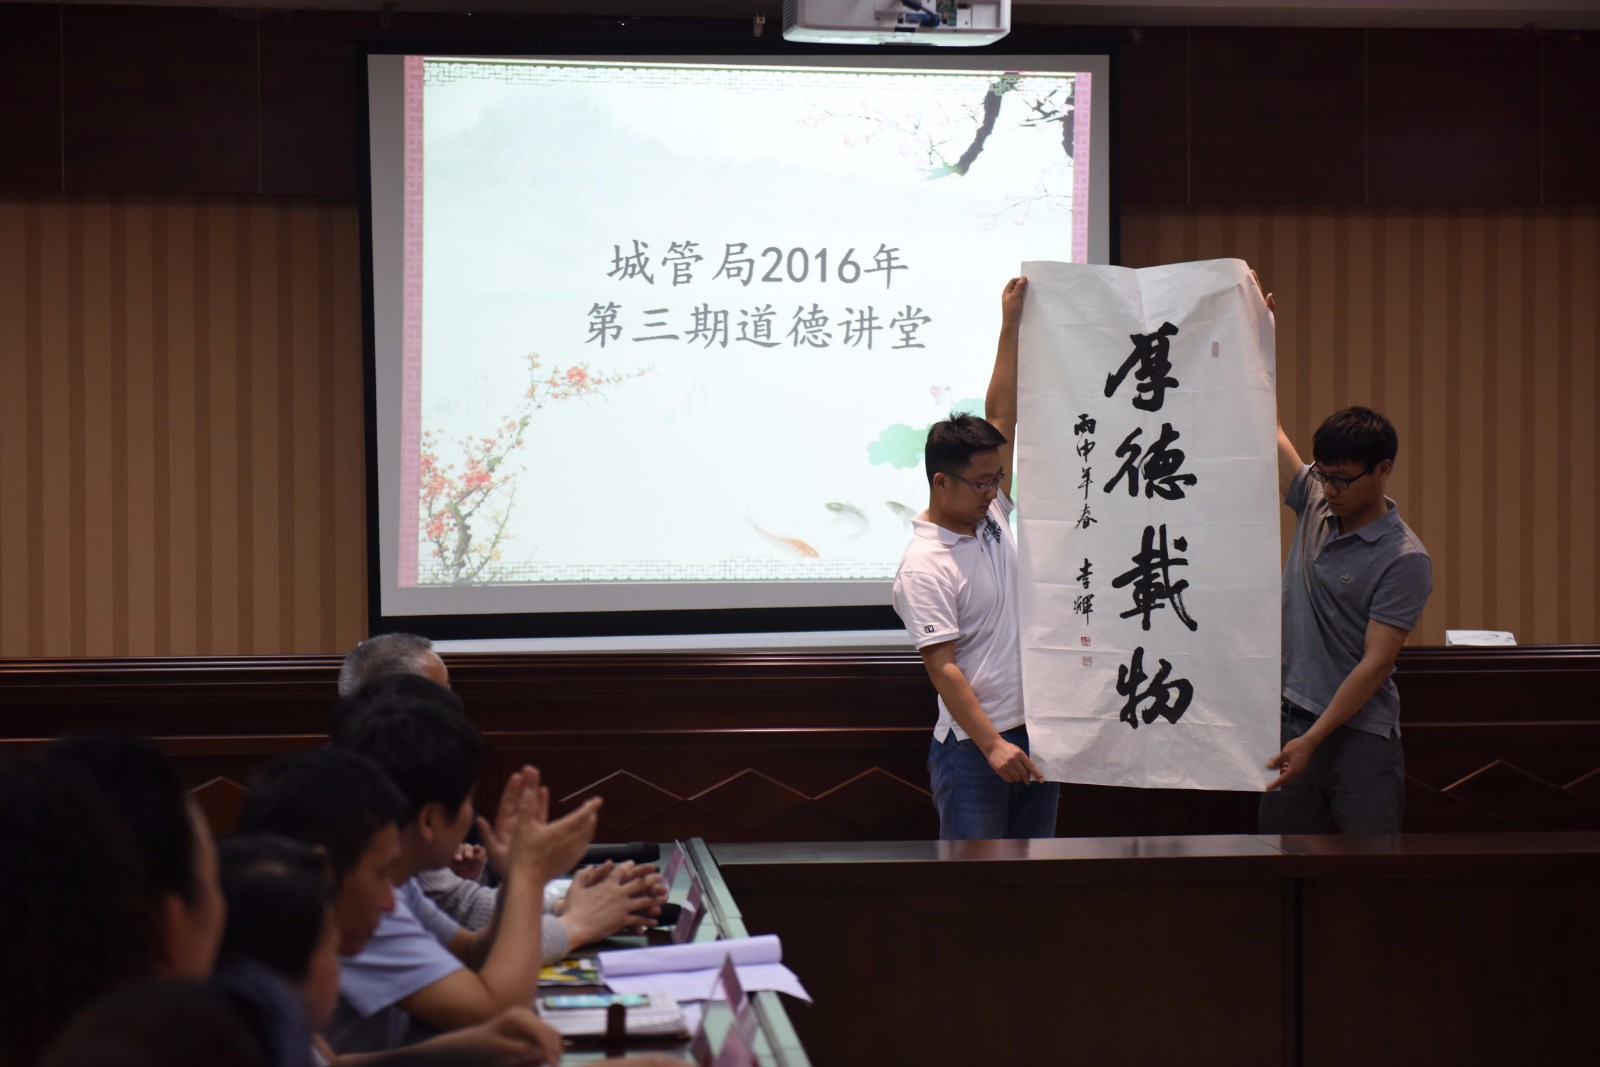 城管局2016年
第三期道德讲堂
厚德載物
丙申年春 李輝